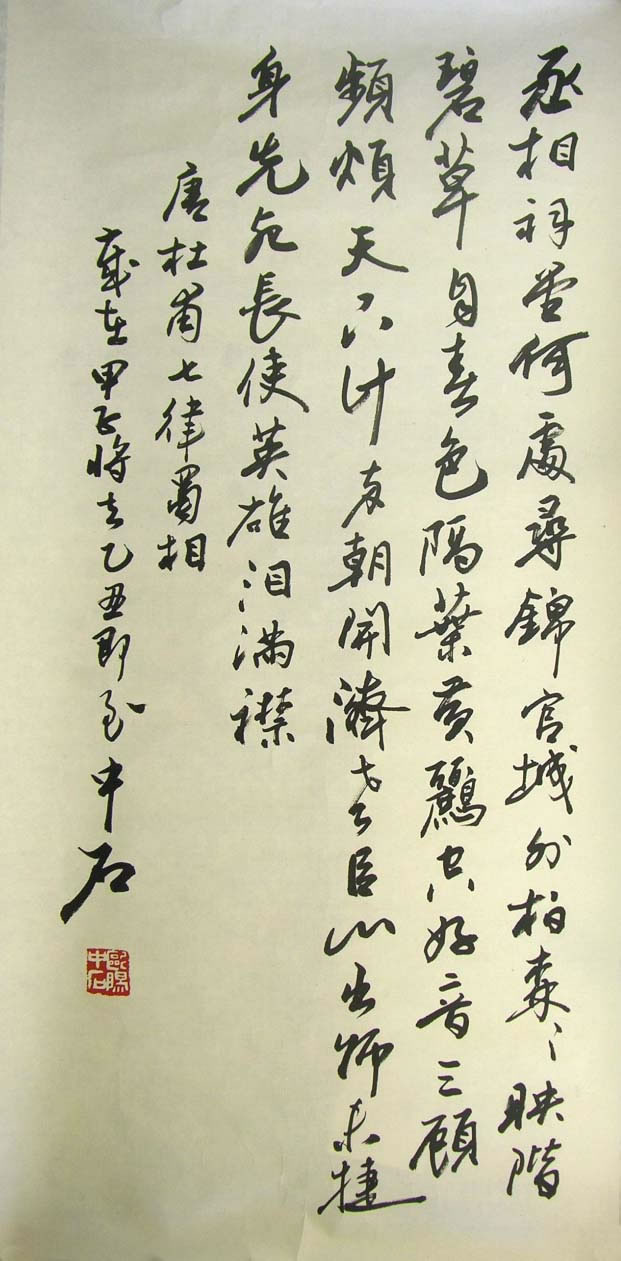 丞相祠堂何處尋錦官城外柏森〻映階
碧草自春色隔葉黃鸝空好音三顧
頻煩天下計兩朝開濟老臣心出師未捷
身先死長使英雄泪滿襟
唐杜甫七律蜀相
歲在甲子將去乙丑即至中石
歐陽中石